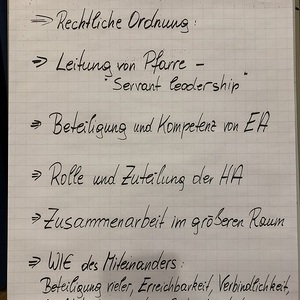 ⇒ Rechtliche Ordnung:
⇒ Leitung von Pfarre –
"Servant leadership"
⇒ Beteiligung und Kompetenz von EA
⇒ Rolle und Zuteilung der HA
⇒ Zusammenarbeit im größeren Raum
⇒ WIE des Miteinanders:
Beteiligung vieler, Erreichbarkeit, Verbindlichkeit,